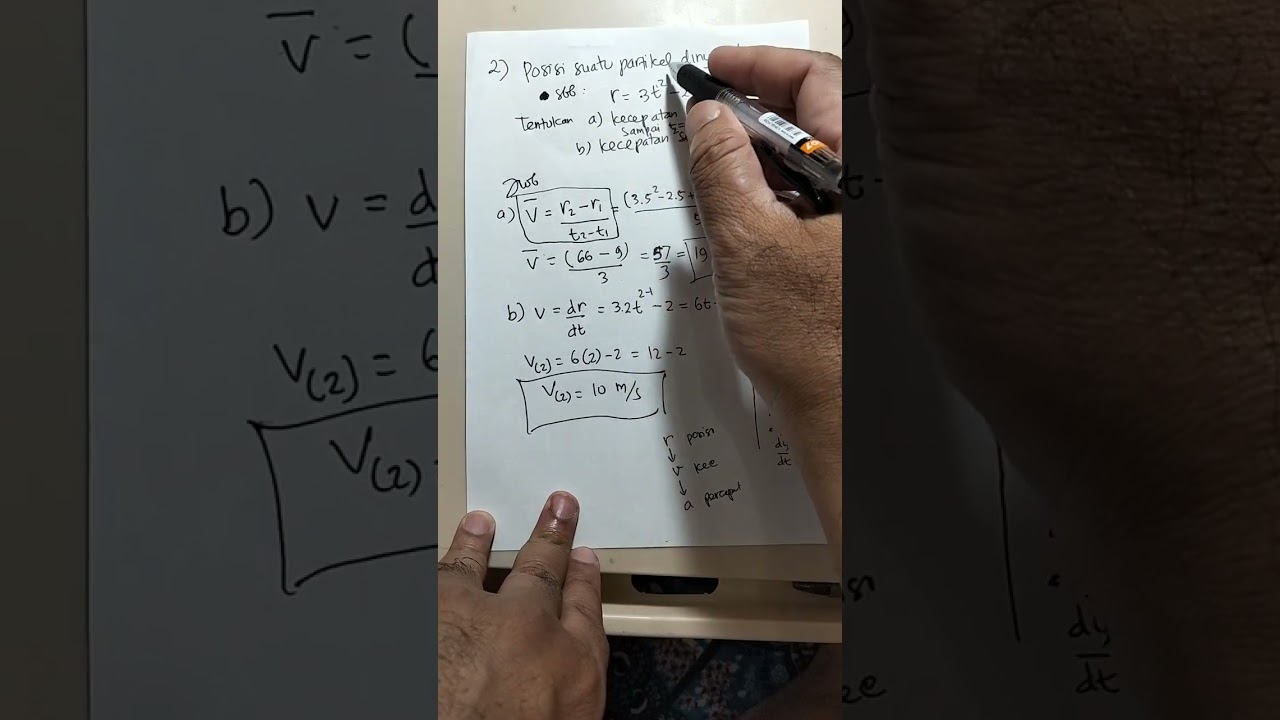 2) Posisi suatu partikel diny
sbb : r = 3t² - 2
Tentukan a) kecepatan
sampai
b) kecepatan
Jwb
a) V̅ = r₂ - r₁ / t₂ - t₁ = (3.5² - 2.5 + / 5
V̅ = (66 - 9) / 3 = 57 / 3 = 19
b) V = dr / dt = 3.2t²⁻¹ - 2 = 6t -
V(2) = 6(2) - 2 = 12 - 2
V(2) = 10 m/s
r posisi
↓
v kec
↓
a percepat
dy / dt